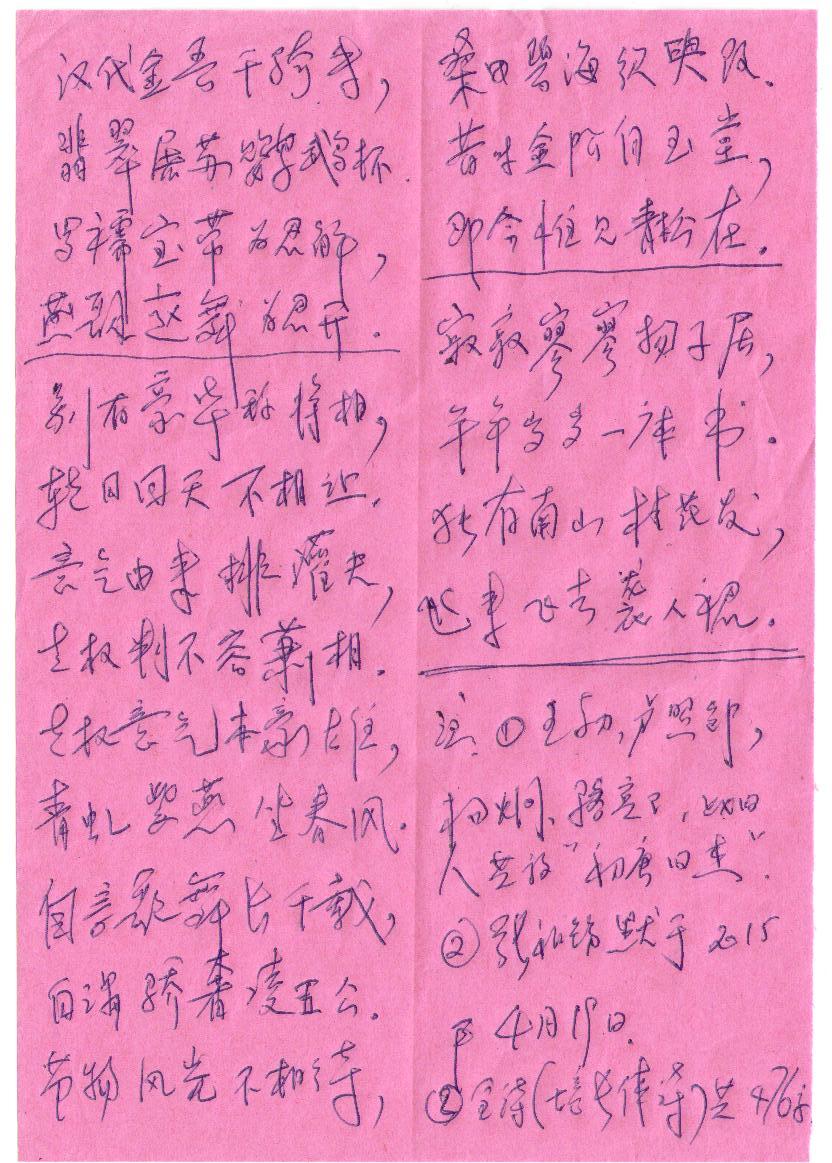 汉代金吾千骑来,
翡翠屠苏鹦鹉杯.
罗襦宝带为君解,
燕歌赵舞为君开.
别有豪华称将相,
转日回天不相让.
意气由来排灌夫,
专权判不容萧相.
专权意气本豪雄,
青虬紫燕坐春风.
自言歌舞长千载,
自谓骄奢凌五公.
节物风光不相待,
桑田碧海须臾改.
昔时金阶白玉堂,
即今惟见青松在.
寂寂寥寥扬子居,
年年岁岁一床书.
独有南山桂花发,
飞来飞去袭人裾.
注: ①王勃,卢照邻,
杨炯、骆宾王,
人共称"初唐四杰".
②张和锦默于2015
年4月19日.
③全诗()共476字